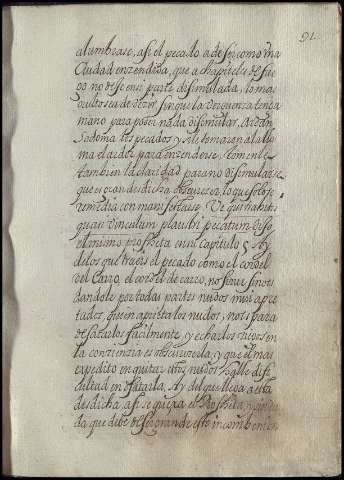 91
alumbrase, asi el pecado a de ser como una
Ciudad enzendida, que a chapiteles de fue
go no dexe en si parte disimulada, lo mas
oculto sea de dezir, sin que la verguenza tenga
mano para poder nada disimular. Ardan
Sodoma los pecados y si le tomaron al alla
ma el ardor para enzenderse, tomenle
tambien la claridad para no disimularse
que es gran desdicha obscurecer, lo que solo se
remedia con manifestarse. Ve qui trahitis
quasi vinculum plaustri peccatum dixo
el mismo propheta en su capitulo 5 Ay
de los que traeis el pecado como el cordel
del Carro, el cordel de carro, no sirve sino es
dandole por todas partes nudos muy apre
tados, quien aprieta los nudos, no es para
desatarlos facilmente, y echarlos ciegos en
la conziencia es obscurecerla, y que el mas
expedito en quitar estos nudos halle difi
cultad en desatarla, Ay del que llega a esta
desdicha, asi se quexa el Propheta,
da que debe de ser grande este incombenien